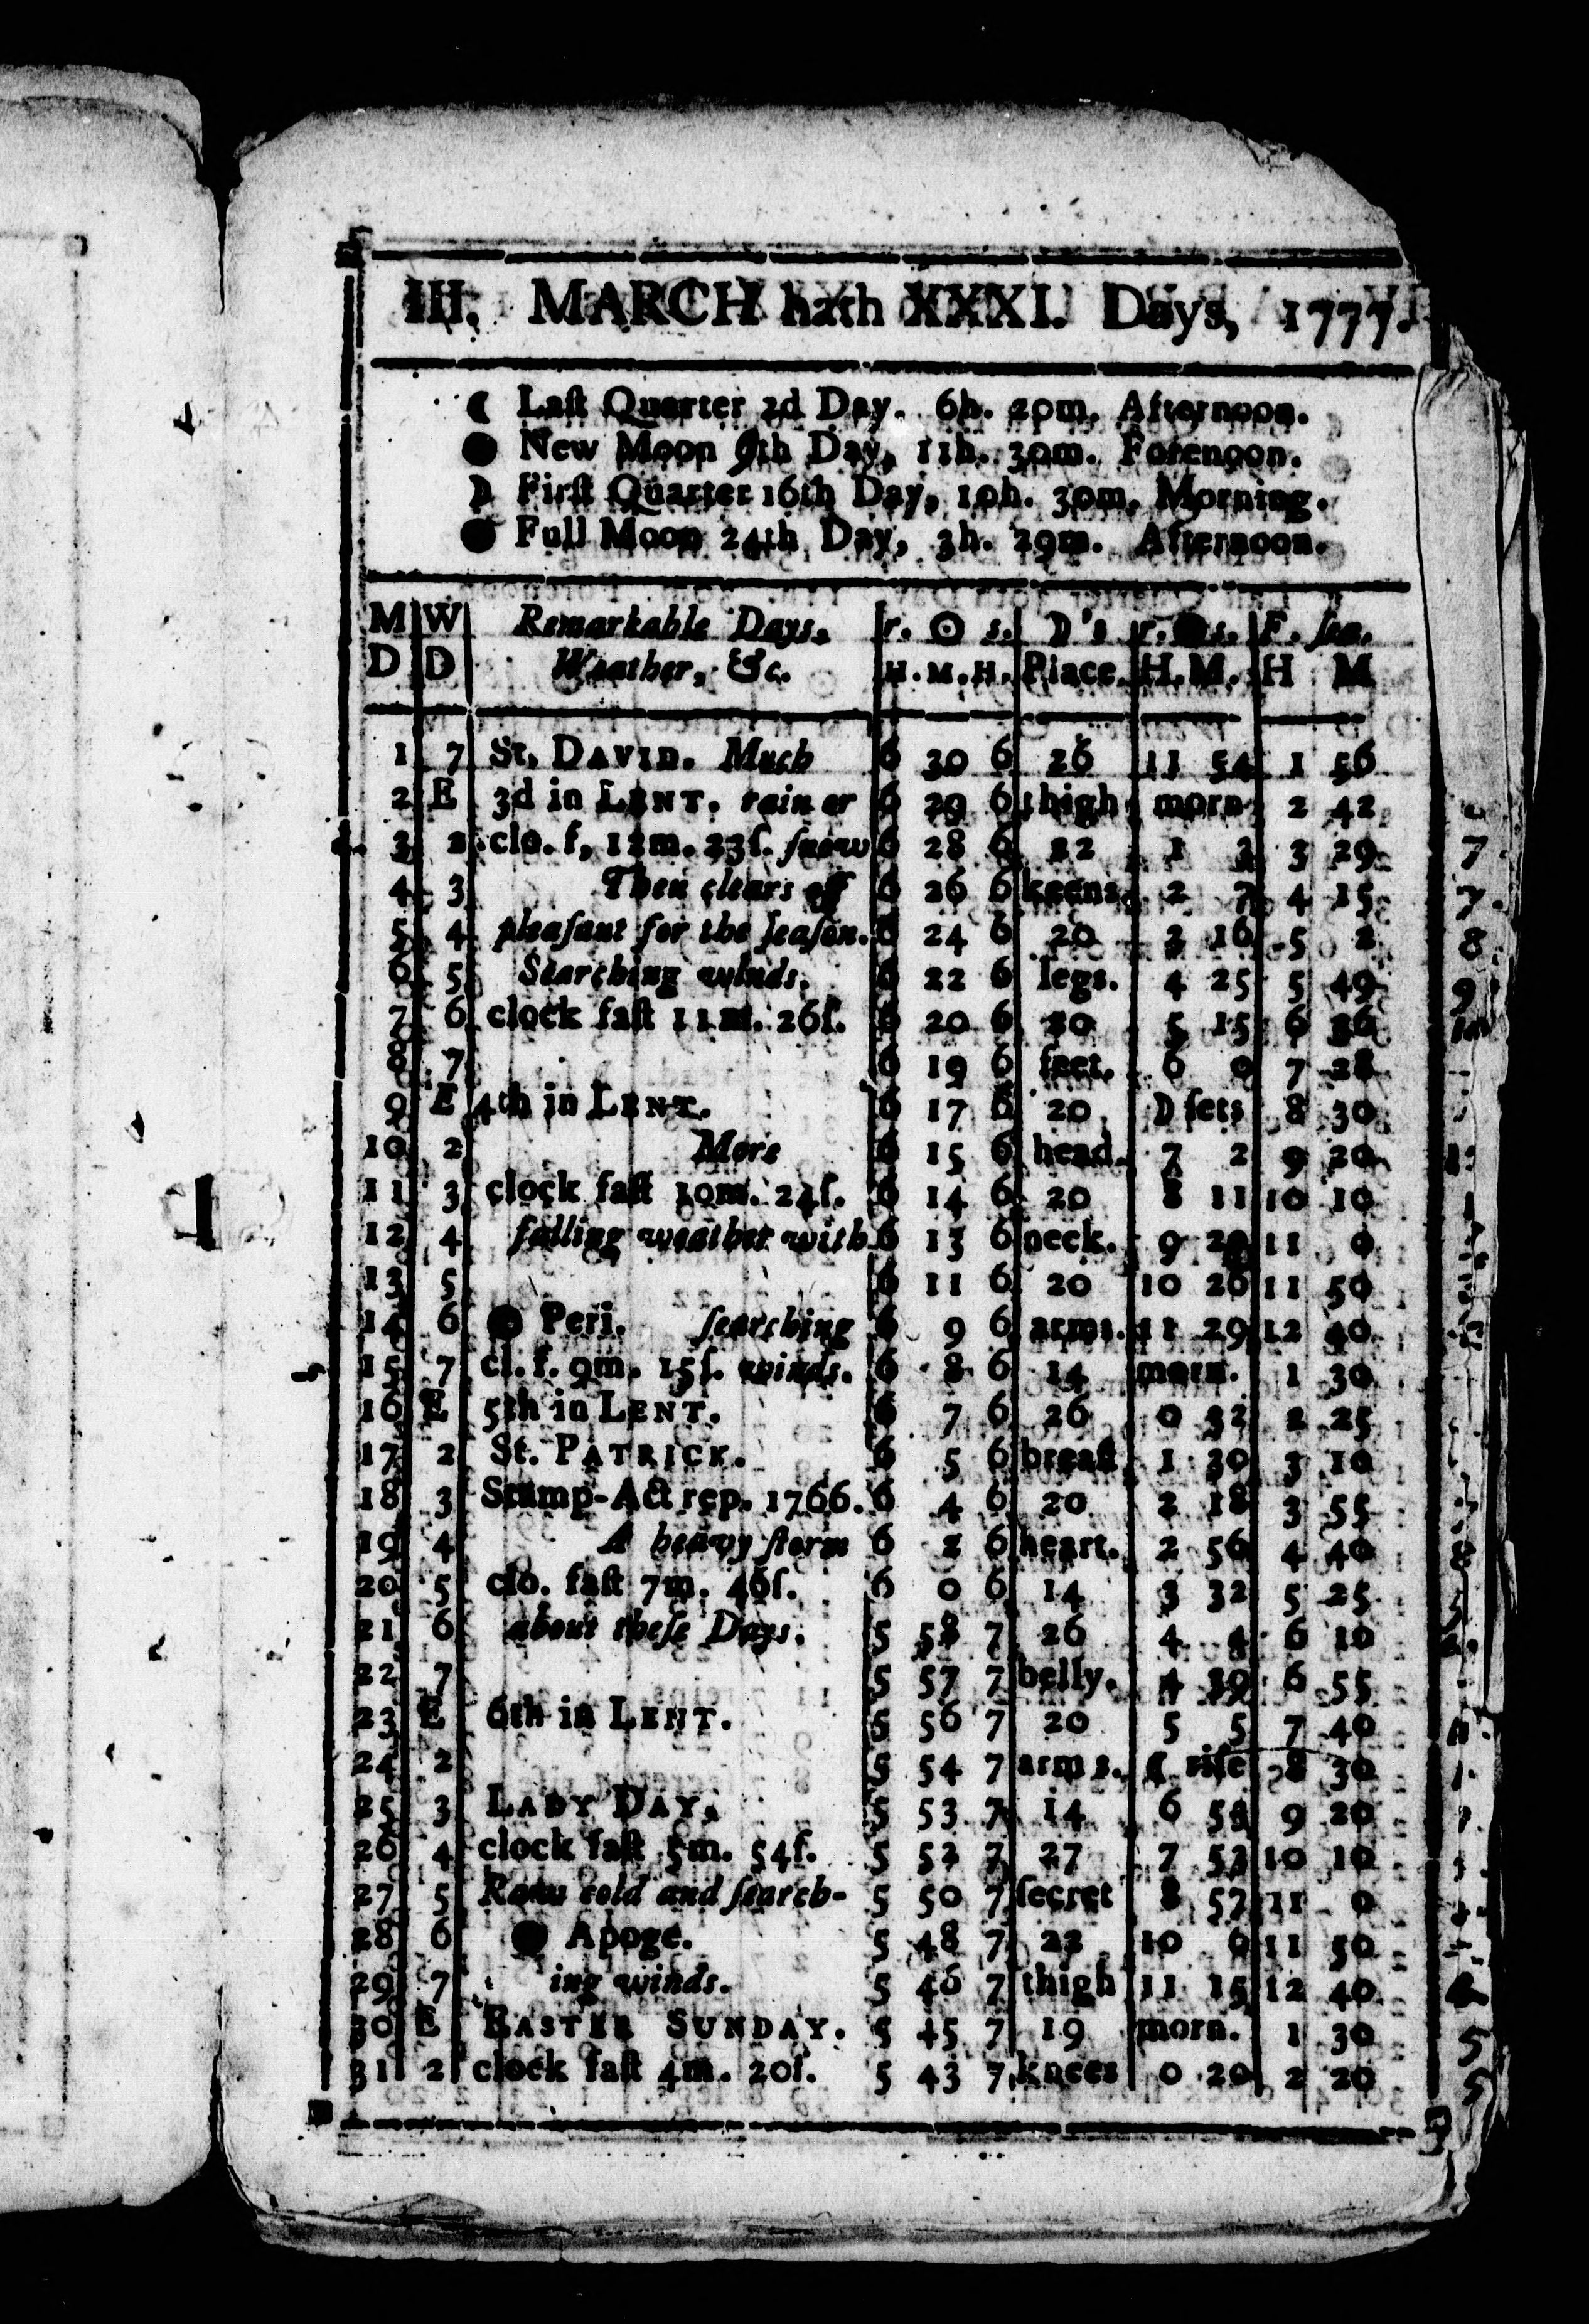 III. MARCH hath XXXI. Days, 1777.
☾ Laſt Quarter 2d Day. 6h. 20m. Afternoon.
● New Moon 9th Day, 11h. 30m. Forenoon.
☽ Firſt Quarter 16th Day, 10h. 30m. Morning.
● Full Moon 24th Day, 3h. 29m. Afternoon.
M W Remarkable Days. r. ☉ s. ☽'s r. ● s. F. ſea.
D D Weather, &c. H. M. H. Place. H. M. H M
1 7 St. DAVID. Much 6 30 6 26 11 54 1 56
2 E 3d in LENT. rain or 6 29 6 thigh morn 2 42
3 2 clo. f, 12m. 23ſ. ſnow 6 28 6 22 1 3 3 29
4 3 Then clears off 6 26 6 knees. 2 7 4 15
5 4 pleaſant for the ſeaſon. 6 24 6 20 3 16 5 2
6 5 Searching winds. 6 22 6 legs. 4 25 5 49
7 6 clock faſt 11m. 26ſ. 6 20 6 20 5 15 6 36
8 7 6 19 6 feet. 6 0 7 28
9 E 4th in LENT. 6 17 6 20 ☽ ſets 8 30
10 2 More 6 15 6 head. 7 2 9 20
11 3 clock faſt 10m. 24ſ. 6 14 6 20 8 11 10 10
12 4 falling weather with 6 13 6 neck. 9 20 11 0
13 5 6 11 6 20 10 26 11 50
14 6 ● Peri. ſearching 6 9 6 arms. 11 29 12 40
15 7 cl. f. 9m. 15ſ. winds. 6 8 6 14 morn. 1 30
16 E 5th in LENT. 6 7 6 26 0 32 2 25
17 2 St. PATRICK. 6 5 6 breaſt 1 30 3 10
18 3 Stamp-Act rep. 1766. 6 4 6 20 2 18 3 55
19 4 A heavy ſtorm 6 2 6 heart. 2 56 4 40
20 5 clo. faſt 7m. 46ſ. 6 0 6 14 3 32 5 25
21 6 about theſe Days. 5 58 7 26 4 4 6 10
22 7 5 57 7 belly. 4 39 6 55
23 E 6th in LENT. 5 56 7 20 5 5 7 40
24 2 5 54 7 arms. ☾ riſe 8 30
25 3 LADY DAY. 5 53 7 14 6 54 9 20
26 4 clock faſt 5m. 54ſ. 5 52 7 27 7 53 10 10
27 5 Raw cold and ſearch- 5 50 7 ſecret 8 57 11 0
28 6 ● Apoge. 5 48 7 22 10 6 11 50
29 7 ing winds. 5 46 7 thigh 11 15 12 40
30 E EASTER SUNDAY. 5 45 7 19 morn. 1 30
31 2 clock faſt 4m. 20ſ. 5 43 7 knees 0 20 2 20